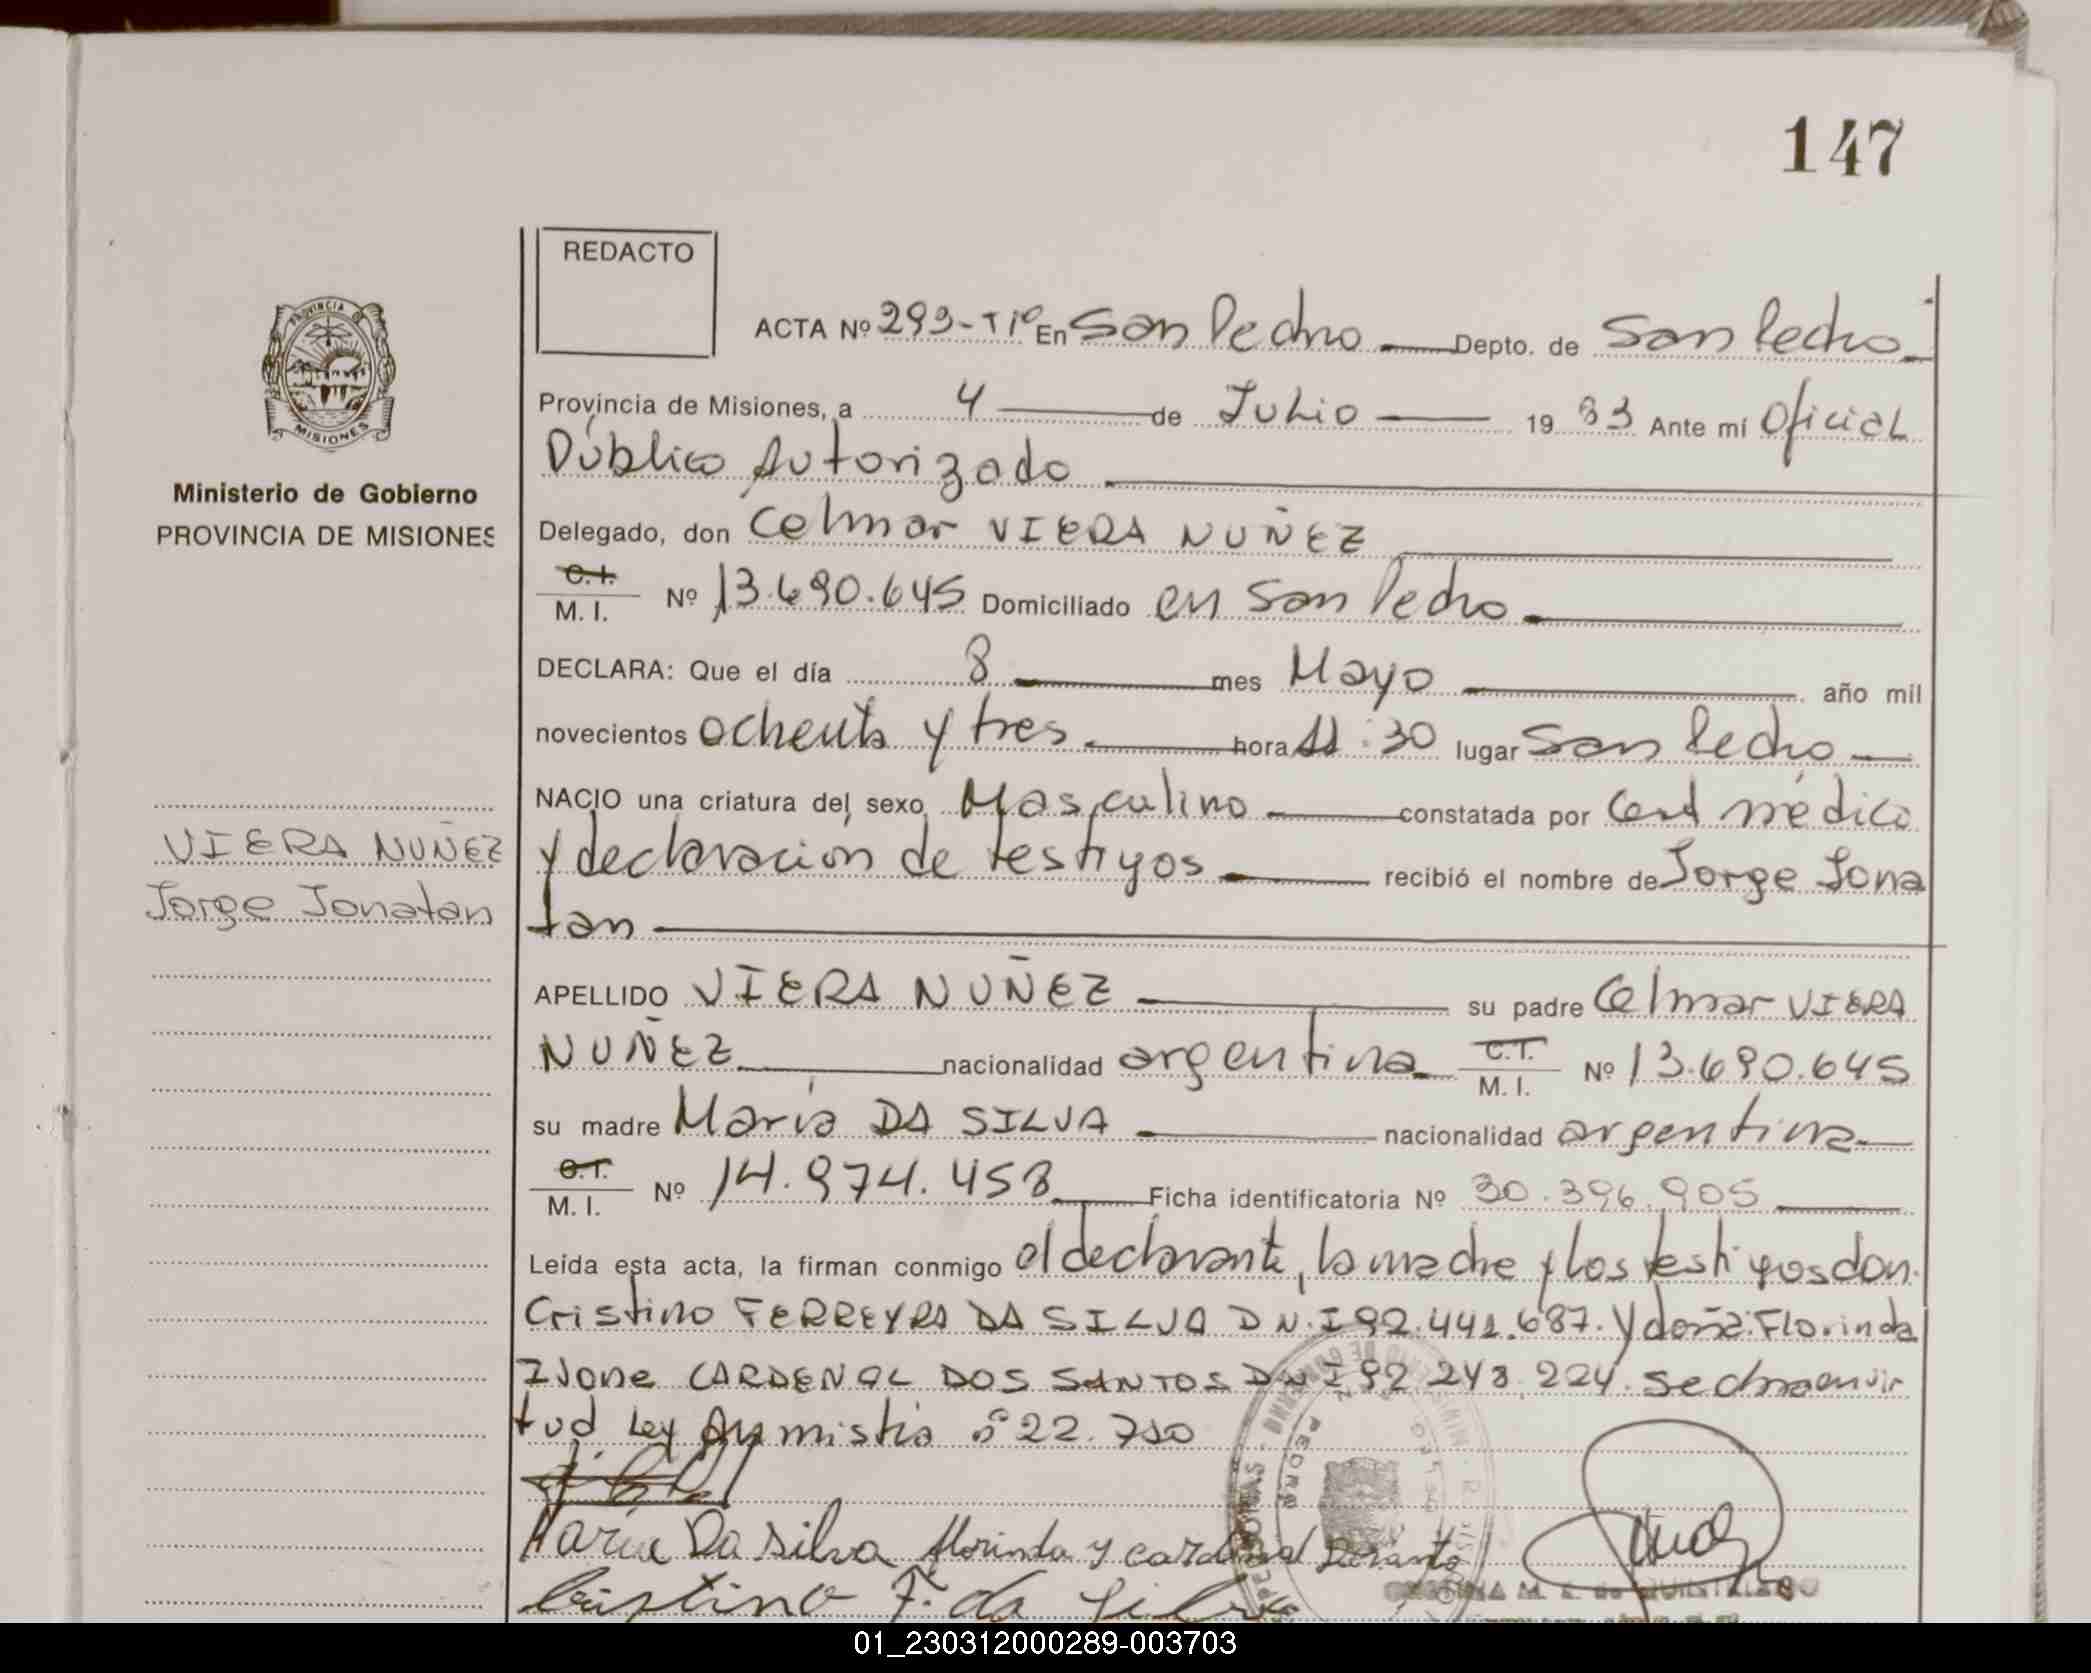 147
REDACTO
ACTA Nº 299-Tiº En San Pedro Depto. de San Pedro
PROVINCIA DE
MISIONES
Provincia de Misiones, a 4 de Julio 19 83 Ante mi Oficial
Público Autorizado
Ministerio de Gobierno
PROVINCIA DE MISIONES
Delegado, don Celmar VIERA NUÑEZ
C.I.
M. I. Nº 13.690.645 Domiciliado en San Pedro
DECLARA: Que el día 8 mes Mayo año mil
novecientos ochenta y tres hora 11:30 lugar San Pedro
NACIO una criatura del sexo Masculino constatada por Cert médico
VIERA NUÑEZ
y declaración de testigos recibió el nombre de Jorge Jona
Jorge Jonatan
tan
APELLIDO VIERA NUÑEZ su padre Celmar VIERA
NUÑEZ nacionalidad argentina C.I. M. I. Nº 13.690.645
su madre María DA SILVA nacionalidad argentina
C.I.
M. I. Nº 14.974.458 Ficha identificatoria Nº 30.396.905
Leída esta acta, la firman conmigo el declarante, la madre y los testigos don
Cristino FERREYRA DA SILVA D N.I 92.441.687. y doña Florinda
Ivone CARDENAL DOS SANTOS DNI 92 248 224. se labra en vir
tud Ley Anmistia nº 22.710
María Da silva florinda y cardenal Dosanto
Cristino F. da Silva
01_230312000289-003703